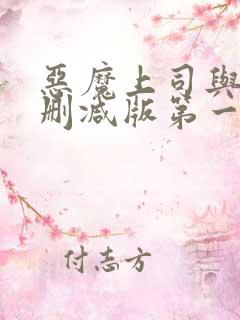 惡魔上司與
刪減版第一
付志方